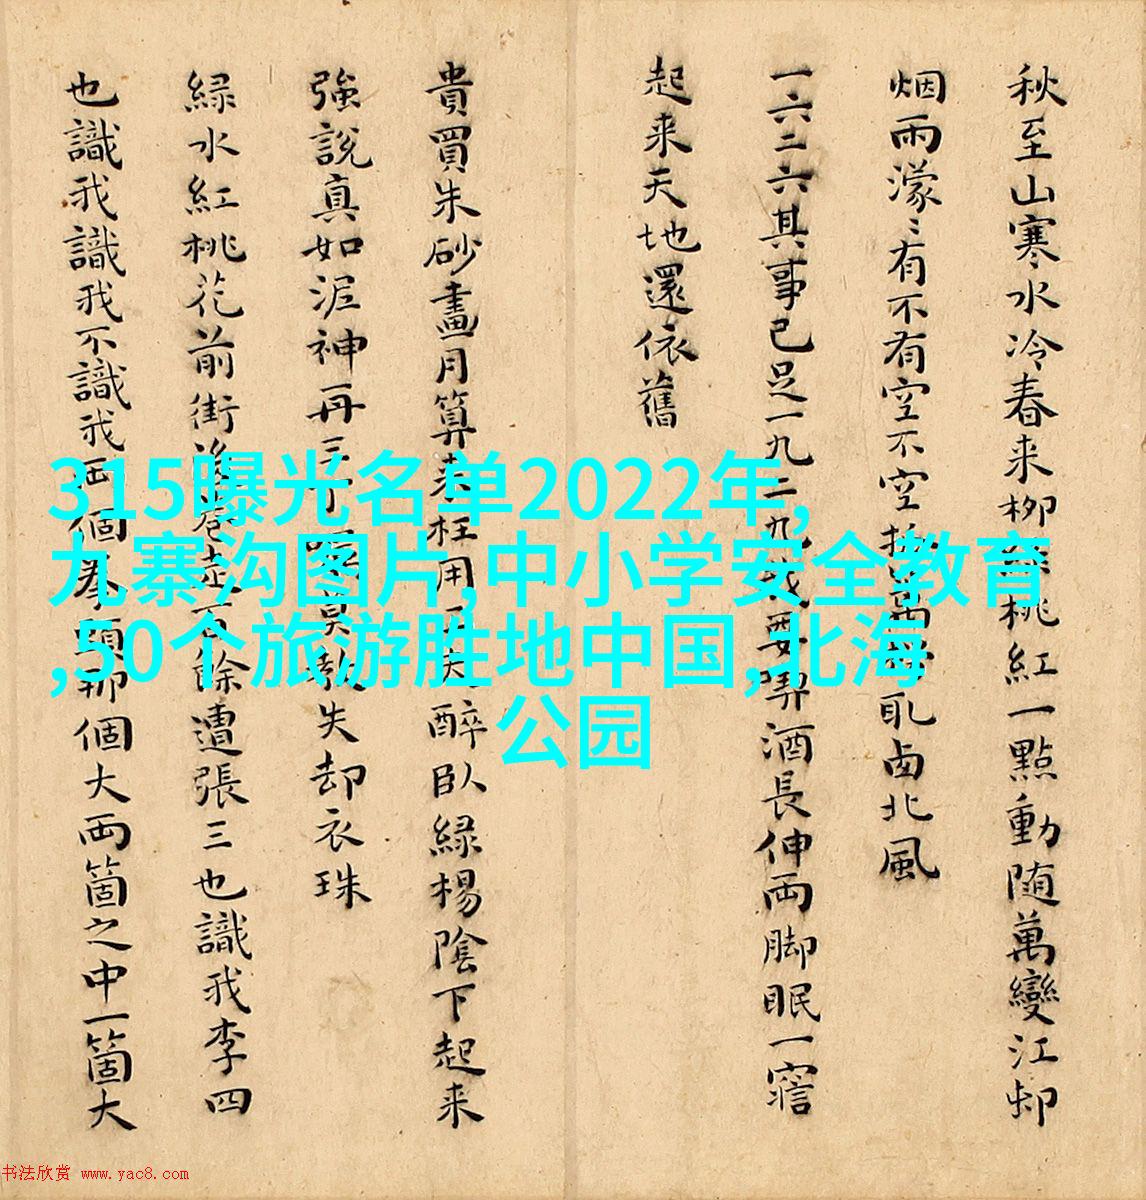 秋至山寒水冷春来柳绿桃紅一點動随萬變江邨
烟雨濛〻有不有空不空 北風
一六二六其事已足一九二九我要喫酒長伸両脚眠一窹
起来天地還依舊
貴買朱砂畫月算来枉用工夫醉臥緑楊陰下起来
強說真如泥神再三 莫教失却衣珠
緑水紅桃花前街後巷走百餘遭張三也識我李四
也識我識我不識我両個拳頭那個大両箇之中一箇大
315曝光名单2022年,
九寨沟图片,中小学安全教育
,50个旅游胜地中国,北海
公园
书法欣赏 www.yac8.com